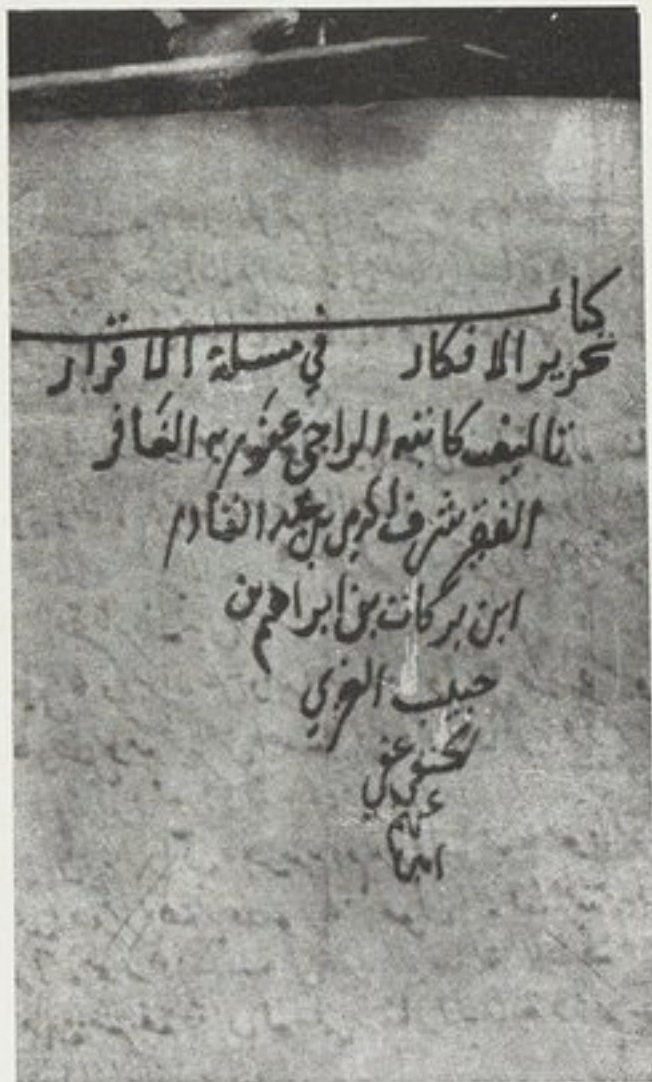 كتاب
تحرير الافكار في مسئلة الاقرار
تاليف كاتبه الراجي عفو ربه الغافر
الفقير شرف الدين بن عبد القادر
ابن بركات بن ابراهيم بن
حبيب الغزي
الحنفي عفي
عنهم